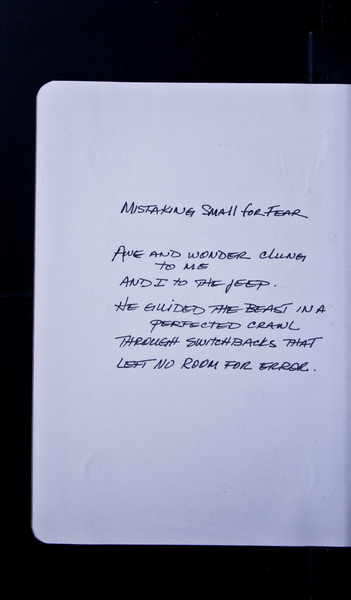 Mistaking Small for Fear
Awe and wonder clung
to me
and I to the jeep.
He guided the beast in a
perfected crawl
through switchbacks that
left no room for error.